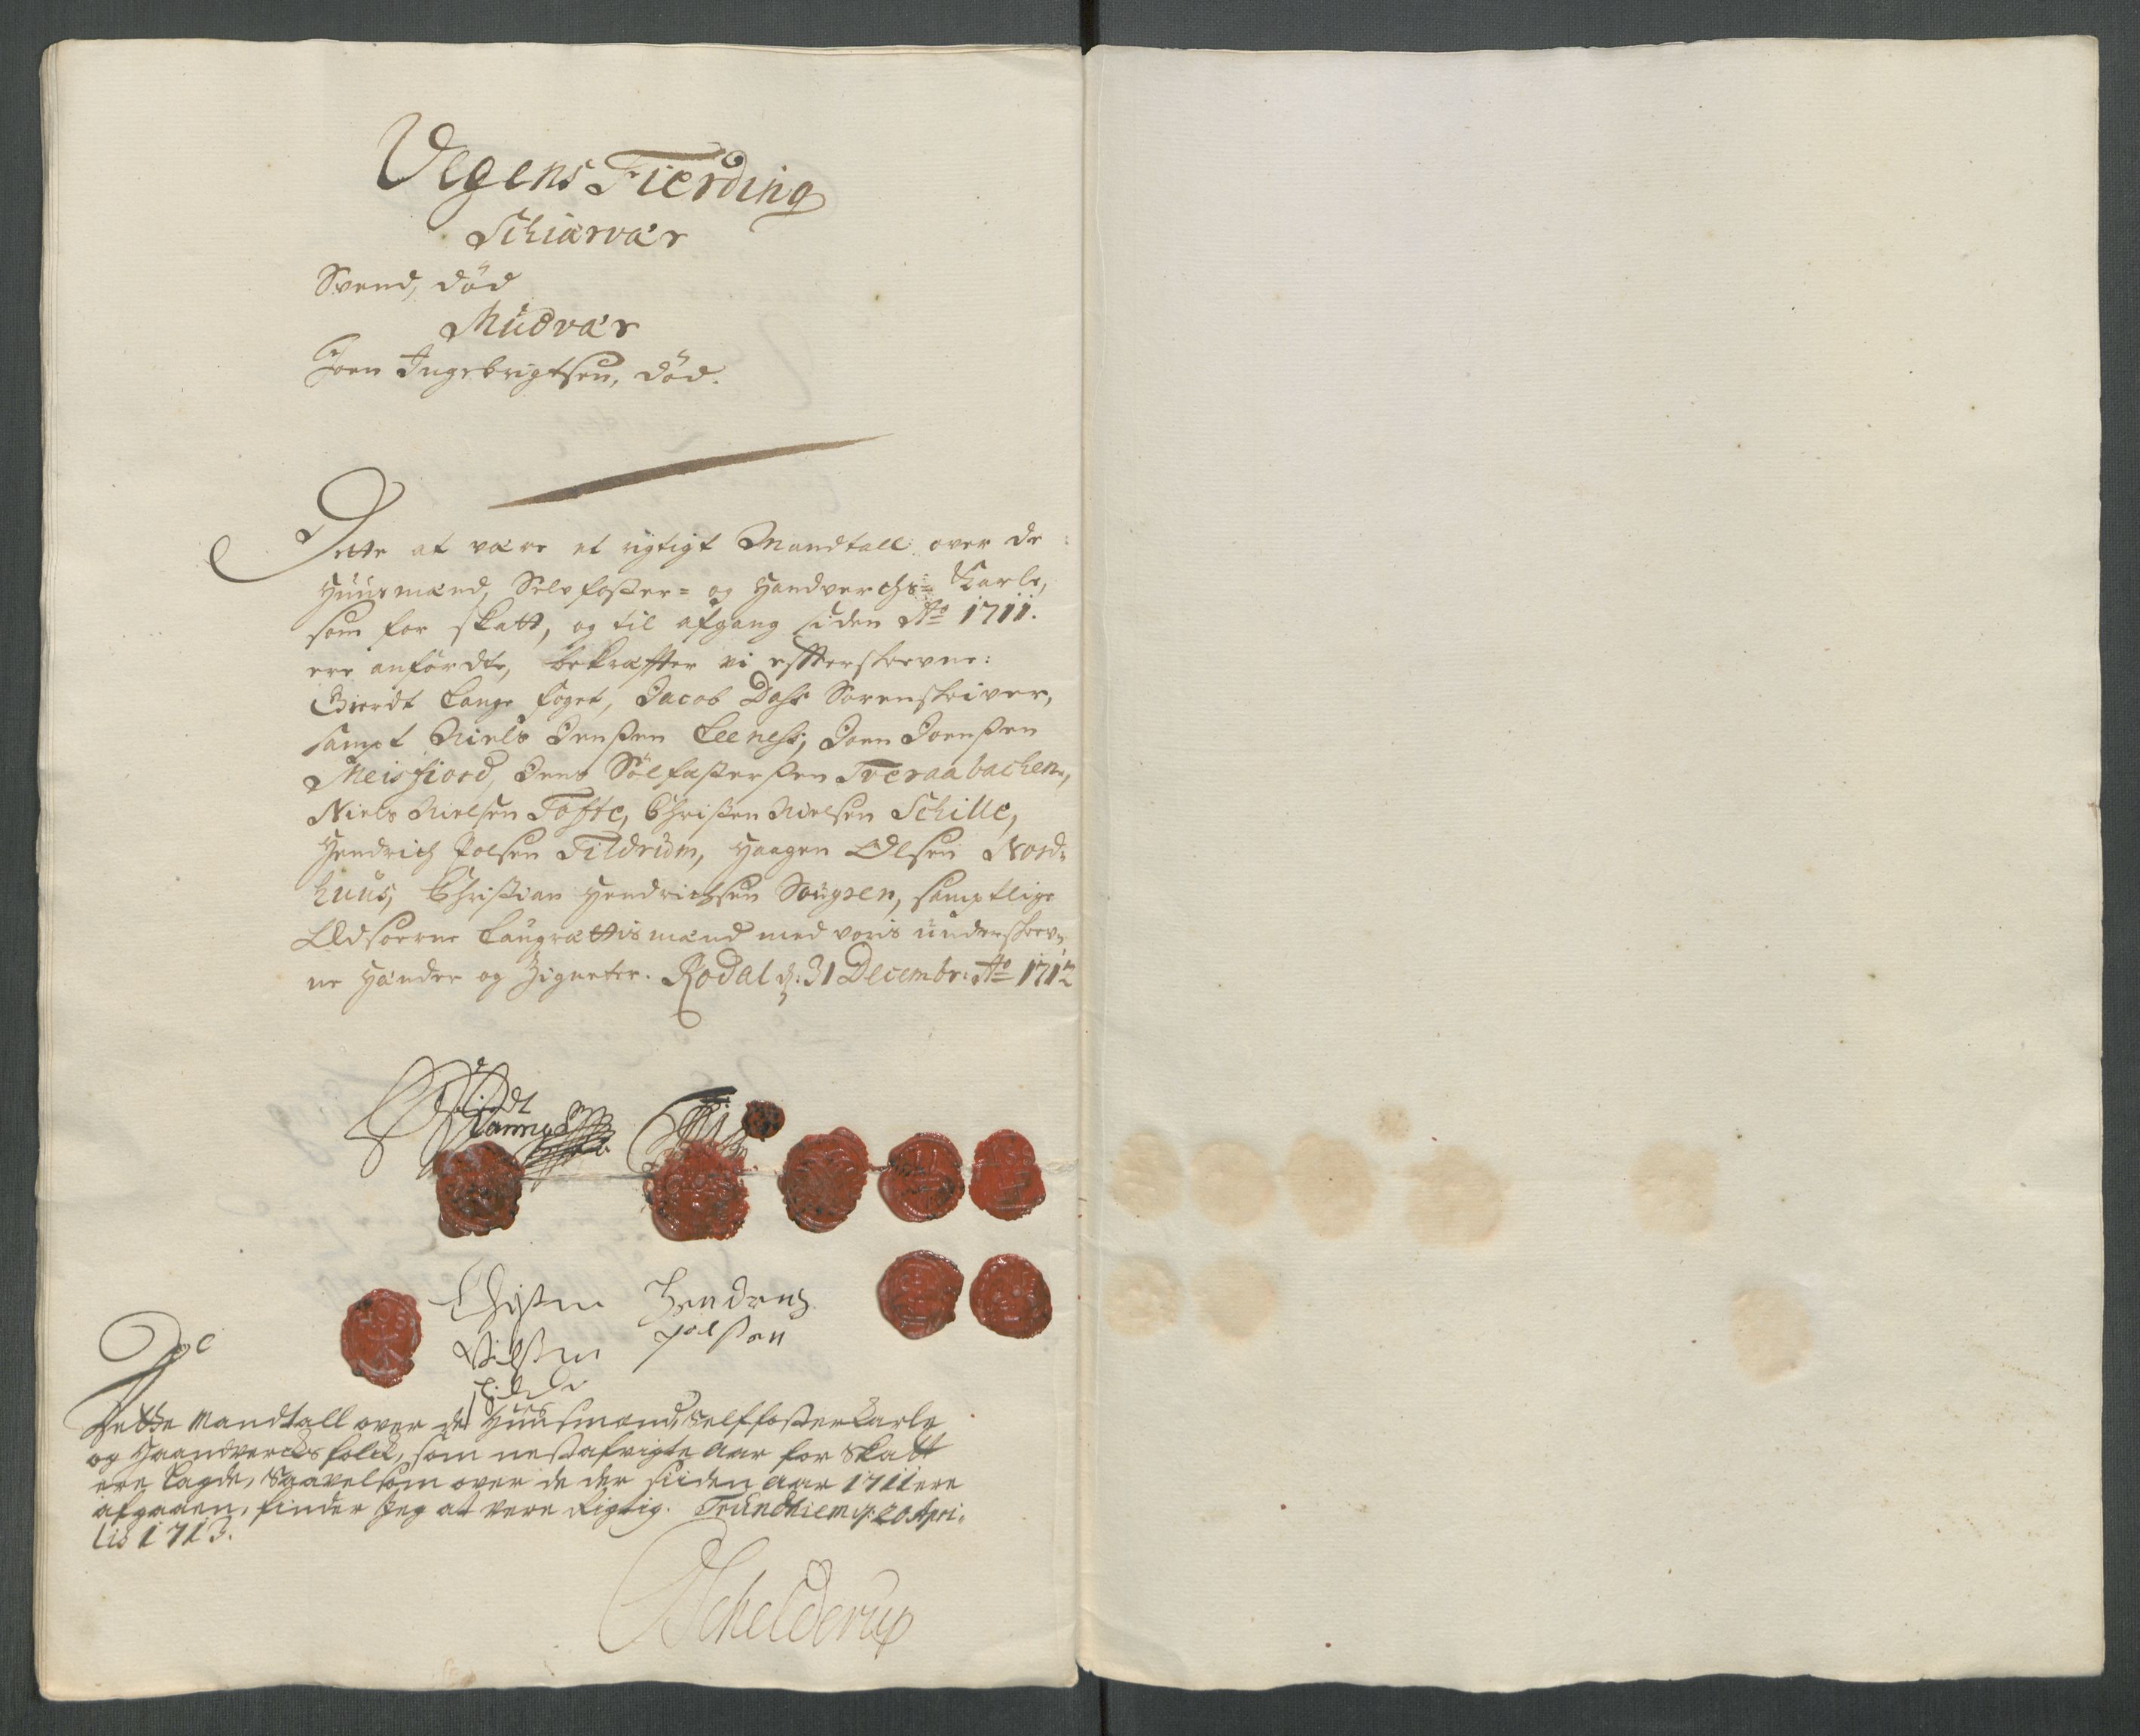 Vegens Fierding
Schiærvær
Svend, död
Mudvær
Joen Ingebrigtsen, död.
Dette at være et rigtigt Mandtall over de
Huusmænd, Selvfoster= og Handverchs= Karle,
som for skatt, og til afgang siden Ao 1711.
ere anfördte, bekræfter vi effterskrevne:
Gierdt Lange foget, Jacob Dass Sorenskriver,
sampt Niels Jenssen Leeness, Joen Joenssen
Meisfiord, Jens Sölfasterssen Tveraabachen,
Niels Nielsen Tofte, Christen Nielsen Schille,
Hendrich Polsen Tildrum, Haagen Olsen Nord=
huus, Christian Hendrichsen Sougsen, samptlige
Edsorne Laugrættismænd med voris underskrev=
ne Hænder og Zigneter. Rodal d: 31 Decembr: Ao 1712
Lannge
Chisten Hendrich
Nilsen Polssen
Schille
Dette Mandtall over de Huusmænd, Selffosterkarle
og Haandvercksfolck, som nestafvigte aar for Skatt
ere Lagde, Saavelsom over de der siiden aar 1711 ere
afgaaen, finder Jeg at vere Rigtig. Trundhiem d: 20 Apri=
lis 1713.
Schelderup